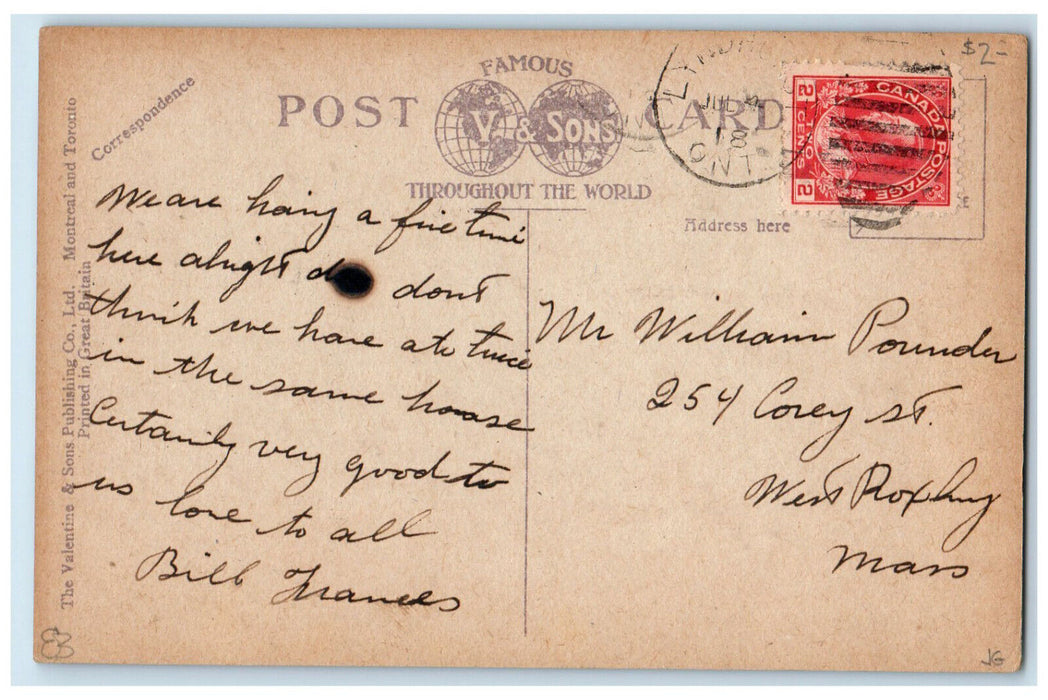 $2-
FAMOUS
POST CARD
V. & SONS
THROUGHOUT THE WORLD
Correspondence
Address here
LYNDH
JUL
18
ONT
CANADA POSTAGE
2 CENTS 2
The Valentine & Sons Publishing Co., Ltd. Montreal and Toronto
Printed in Great Britain
We are having a fine time
here alright dont
think we have ate twice
in the same house
Certainly very good to
us love to all
Bill Frances
Mr William Pounder
254 Corey st.
West Roxbury
Mass
JG